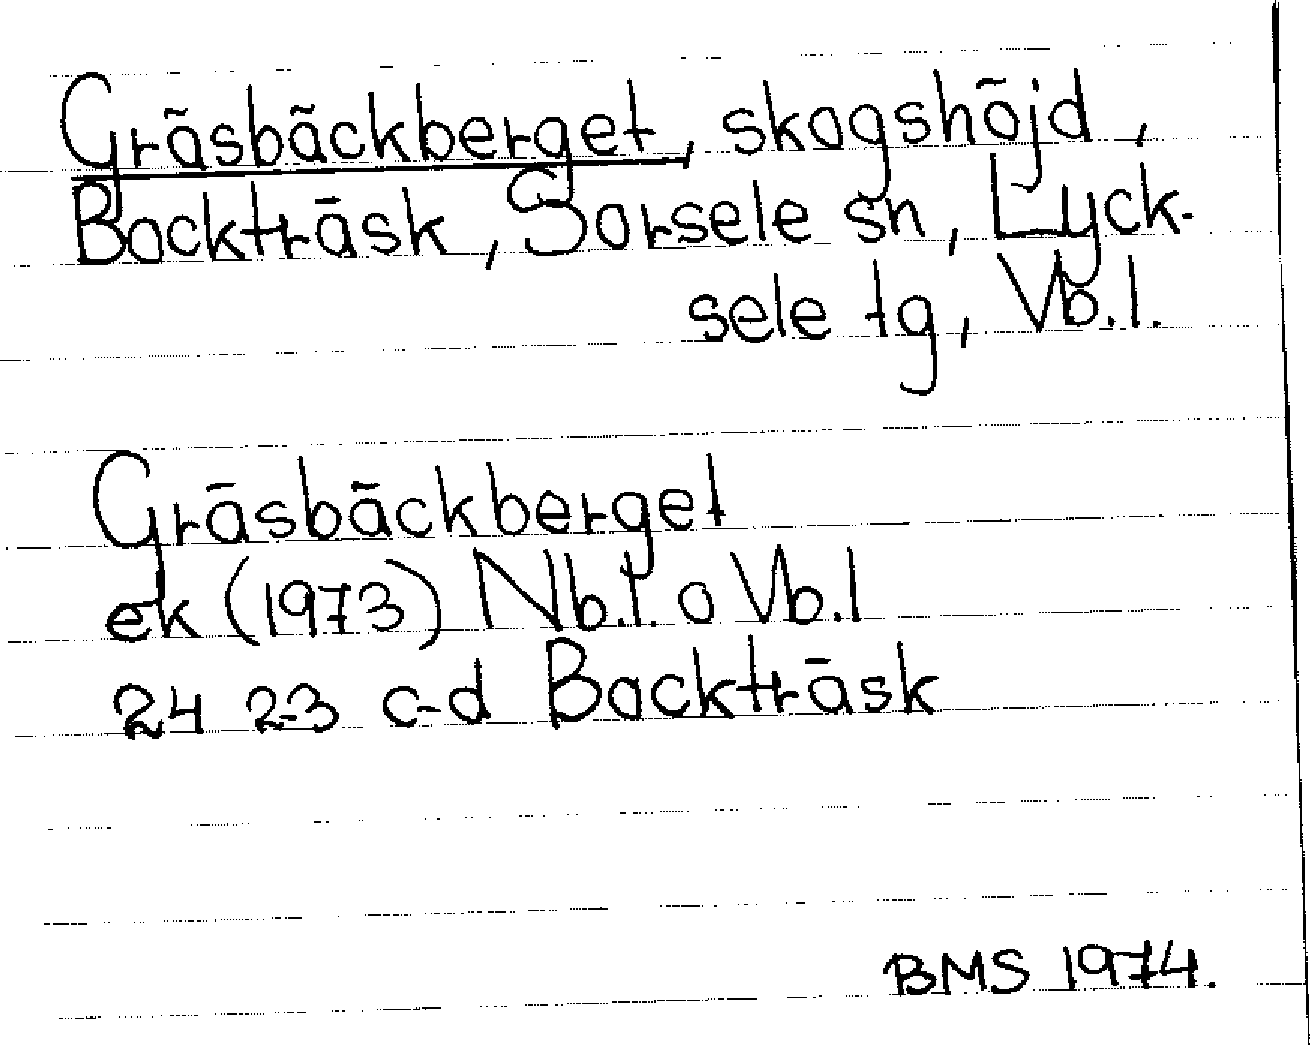 Gräsbäckberget, skogshöjd,
Backträsk, Sorsele sn, Lyck-
sele tg, Vb.l.
Gräsbäckberget
ek (1973) Nb.l. o Vb.l
24 2-3 c-d Backträsk
BMS 1974.